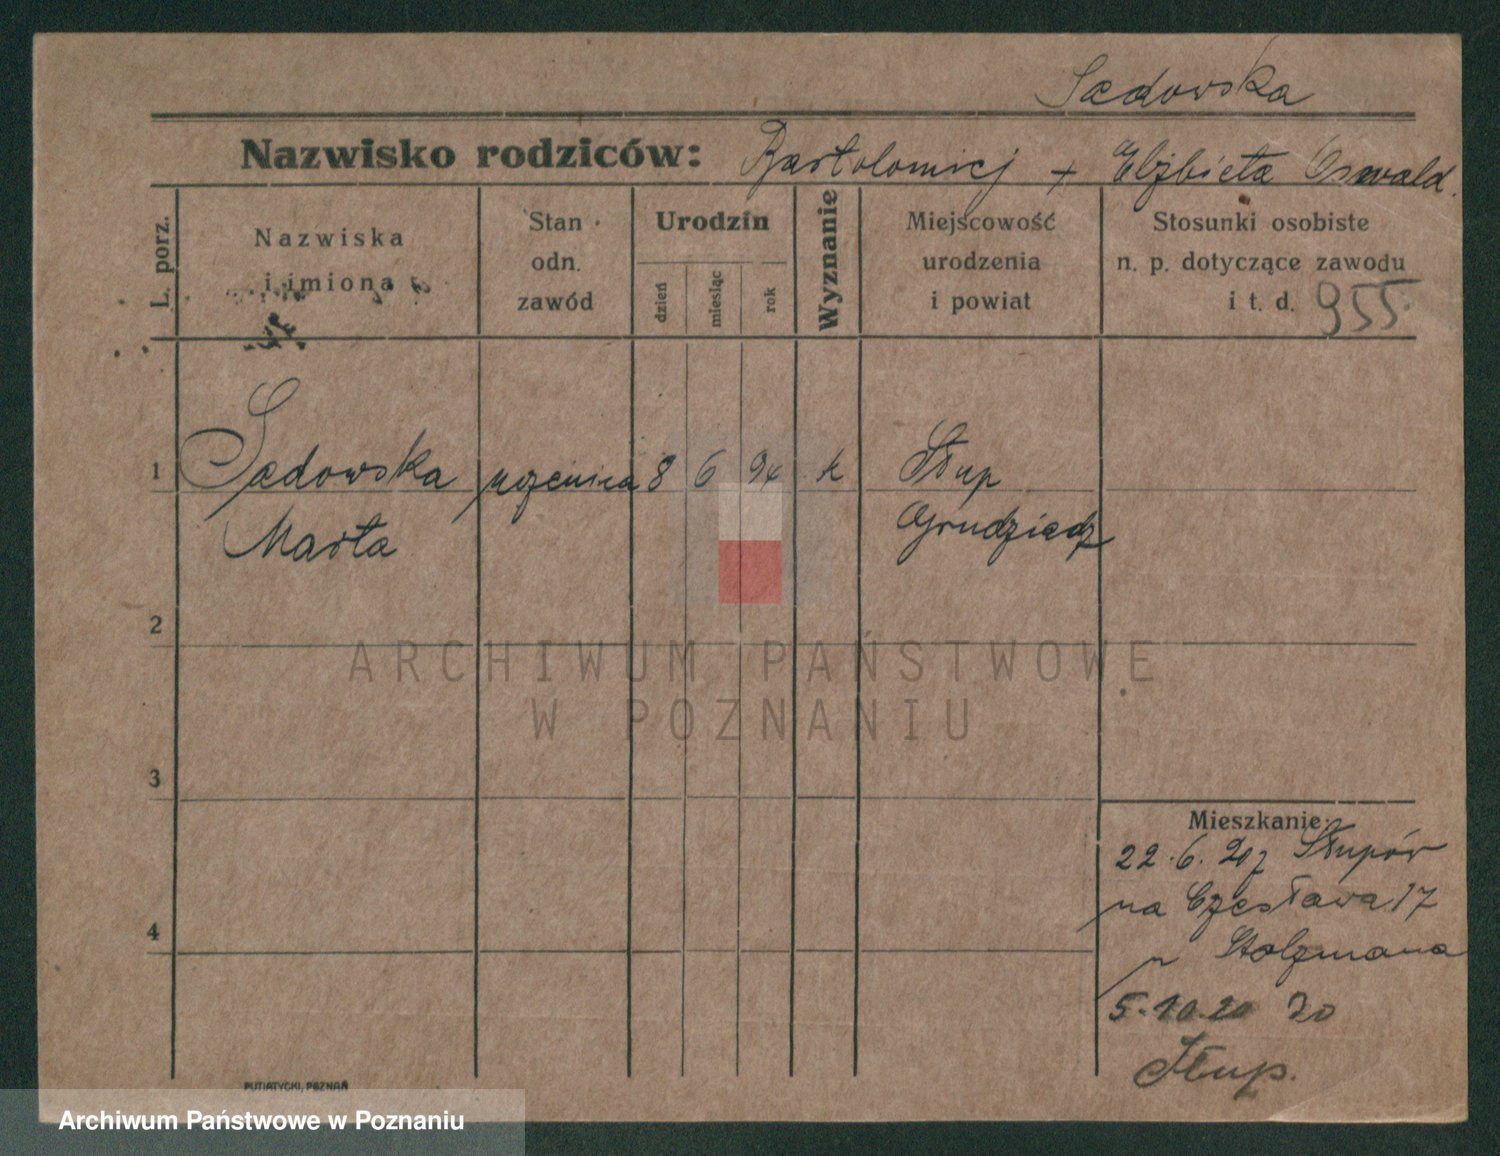 Sadowska
Nazwisko rodziców: Bartolomiej + Elżbieta Oswald.
L. porz.
Nazwiska
i imiona
Stan
odn.
zawód
Urodzin
dzień
miesiąc
rok
Wyznanie
Miejscowość
urodzenia
i powiat
Stosunki osobiste
n. p. dotyczące zawodu
i t. d. 955
1 Sadowska uczenica 8 6 94 k Słup
Marta Grudziądz
2
3
4
Mieszkanie:
22.6. 20 z Słupów
na Czesława 17
Stolzmana
5.10.20 do
Słup.
PUTIATYCKI, POZNAŃ
ARCHIWUM PAŃSTWOWE
W POZNANIU
Archiwum Państwowe w Poznaniu